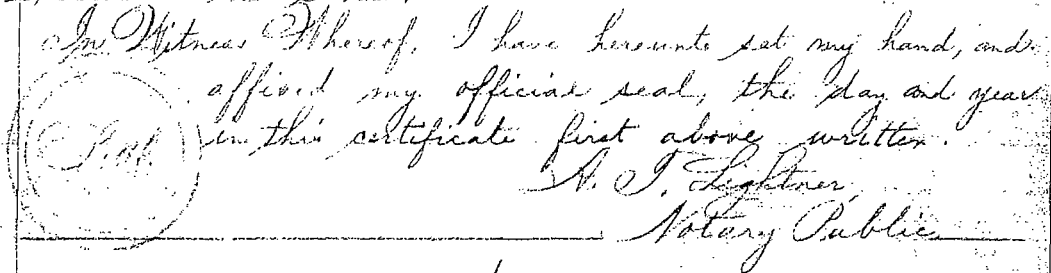 In Witness Whereof, I have hereunto set my hand, and
affixed my official seal, the day and year
in this certificate first above written.
Seal
A. T. Lightner,
Notary Public